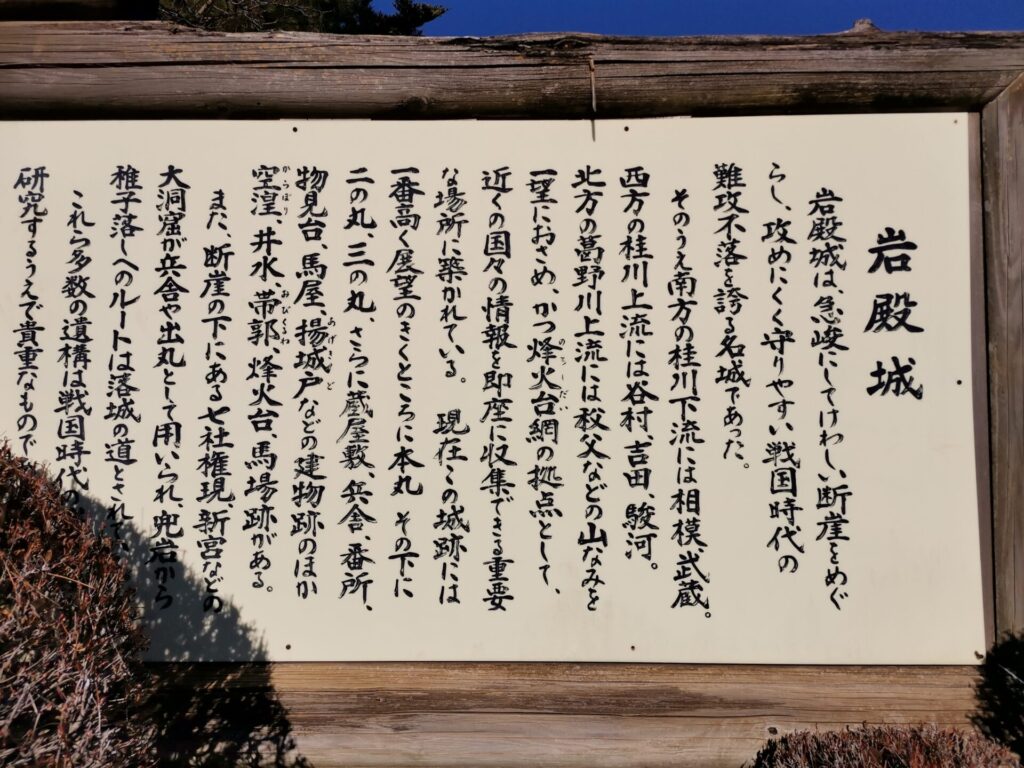 岩殿城
岩殿城は、急峻にしてけわしい断崖をめぐ
らし、攻めにくく守りやすい戦国時代の
難攻不落を誇る名城であった。
そのうえ南方の桂川下流には相模、武蔵。
西方の桂川上流には谷村、吉田、駿河。
北方の葛野川上流には秩父などの山なみを
一望におさめ、かつ烽火台網の拠点として、
近くの国々の情報を即座に収集できる重要
な場所に築かれている。 現在この城跡には
一番高く展望のきくところに本丸 その下に
二の丸、三の丸、さらに蔵屋敷、兵舎、番所、
物見台、馬屋、揚城戸などの建物跡のほか
空湟、井水、帯郭、烽火台、馬場跡がある。
また、断崖の下にある七社権現、新宮などの
大洞窟が兵舎や出丸として用いられ、兜岩から
稚子落しへのルートは落城の道とされて
これら多数の遺構は戦国時代の
研究するうえで貴重なもので